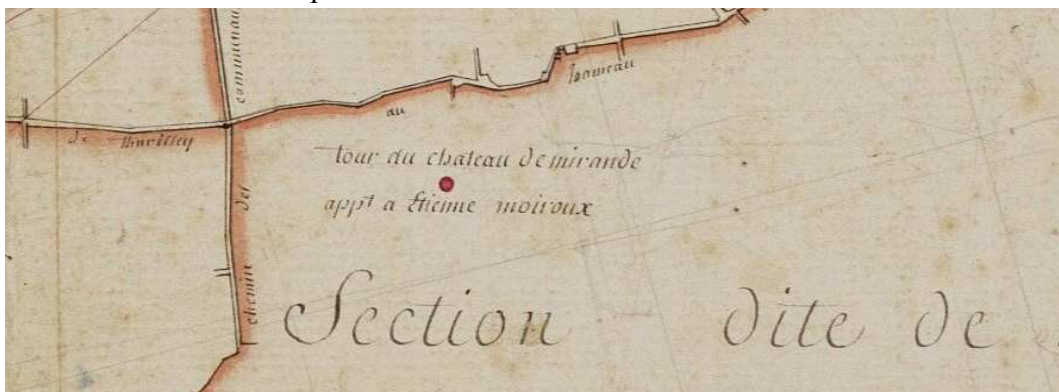 communaux
hameau
au
de thurilley
tour du chateau de mirande
appt a Etienne moiroux
chemin des
Section dite de